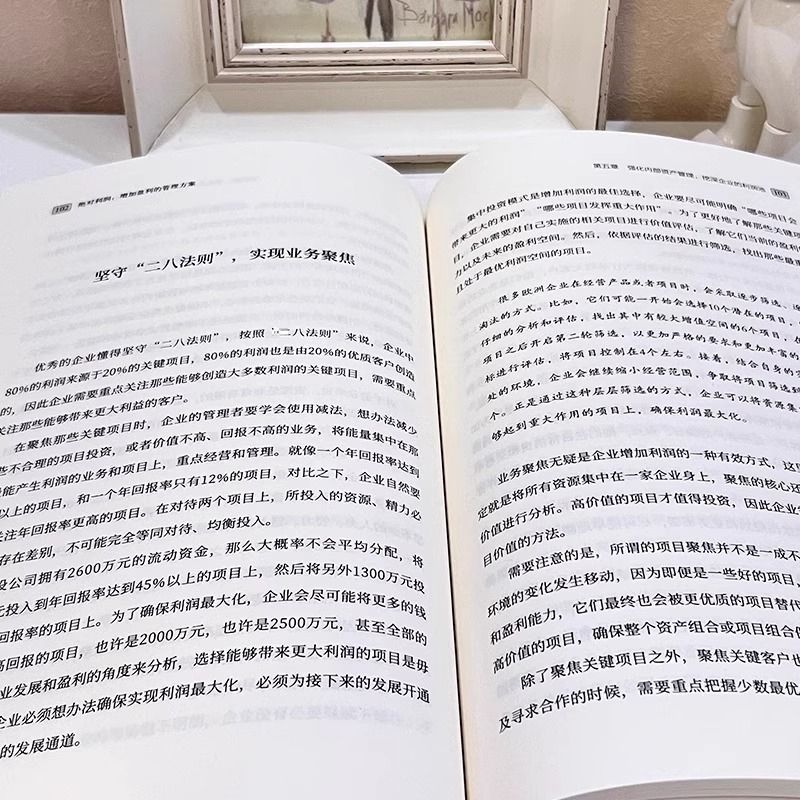 Barbara Mo
102 绝对利润：增加盈利的管理方案
坚守“二八法则”，实现业务聚焦
优秀的企业懂得坚守“二八法则”，按照“二八法则”来说，企业中
80%的利润来源于20%的关键项目，80%的利润也是由20%的优质客户创造
的，因此企业需要重点关注那些能够创造大多数利润的关键项目，需要重点
关注那些能够带来更大利益的客户。
在聚焦那些关键项目时，企业的管理者要学会使用减法，想办法减少
些不合理的项目投资，或者价值不高、回报不高的业务，将能量集中在那
能产生利润的业务和项目上，重点经营和管理。就像一个年回报率达到
以上的项目，和一个年回报率只有12%的项目，对比之下，企业自然要
关注年回报率更高的项目。在对待两个项目上，所投入的资源、精力必
存在差别，不可能完全等同对待、均衡投入。
设公司拥有2600万元的流动资金，那么大概率不会平均分配，将
元投入到年回报率达到45%以上的项目上，然后将另外1300万元投
回报率的项目上。为了确保利润最大化，企业会尽可能将更多的钱
高回报的项目，也许是2000万元，也许是2500万元，甚至全部的
业发展和盈利的角度来分析，选择能够带来更大利润的项目是毋
企业必须想办法确保实现利润最大化，必须为接下来的发展开通
的发展通道。
第五章 强化内部资产管理，挖深企业的利润池 103
集中投资模式是增加利润的最佳选择，企业要尽可能明确“哪些项目会
带来更大的利润”“哪些项目发挥重大作用”。为了更好地了解那些关键项
目，企业需要对自己实施的相关项目进行价值评估，了解它们当前的盈利
力以及未来的盈利空间。然后，依据评估的结果进行筛选，找出那些最
且处于最优利润空间的项目。
很多欧洲企业在经营产品或者项目时，会采取逐步筛选、逐
淘汰的方式。比如，它们可能一开始会选择10个潜在的项目，
行细的分析和评估，找出其中有较大增值空间的6个项目，在
项目之后开启第二轮筛选，以更加严格的要求和更加丰富的
标进行评估，将项目控制在4个左右。接着，结合自身的实
处的环境，企业会继续缩小经营范围，争取将项目筛选到
个。正是通过这种层层筛选的方式，企业可以将资源集
够起到重大作用的项目上，确保利润最大化。
业务聚焦无疑是企业增加利润的一种有效方式，这
定就是将所有资源集中在一家企业身上，聚焦的核心还
价值进行分析。高价值的项目才值得投资，因此企业
目价值的方法。
需要注意的是，所谓的项目聚焦并不是一成不
环境的变化发生移动，因为即便是一些好的项目，
和盈利能力，它们最终也会被更优质的项目替代
高价值的项目，确保整个资产组合或项目组合
除了聚焦关键项目之外，聚焦关键客户也
及寻求合作的时候，需要重点把握少数最优